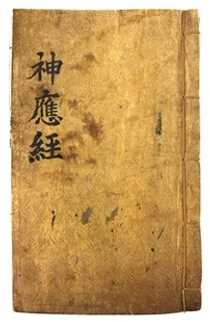 神應經